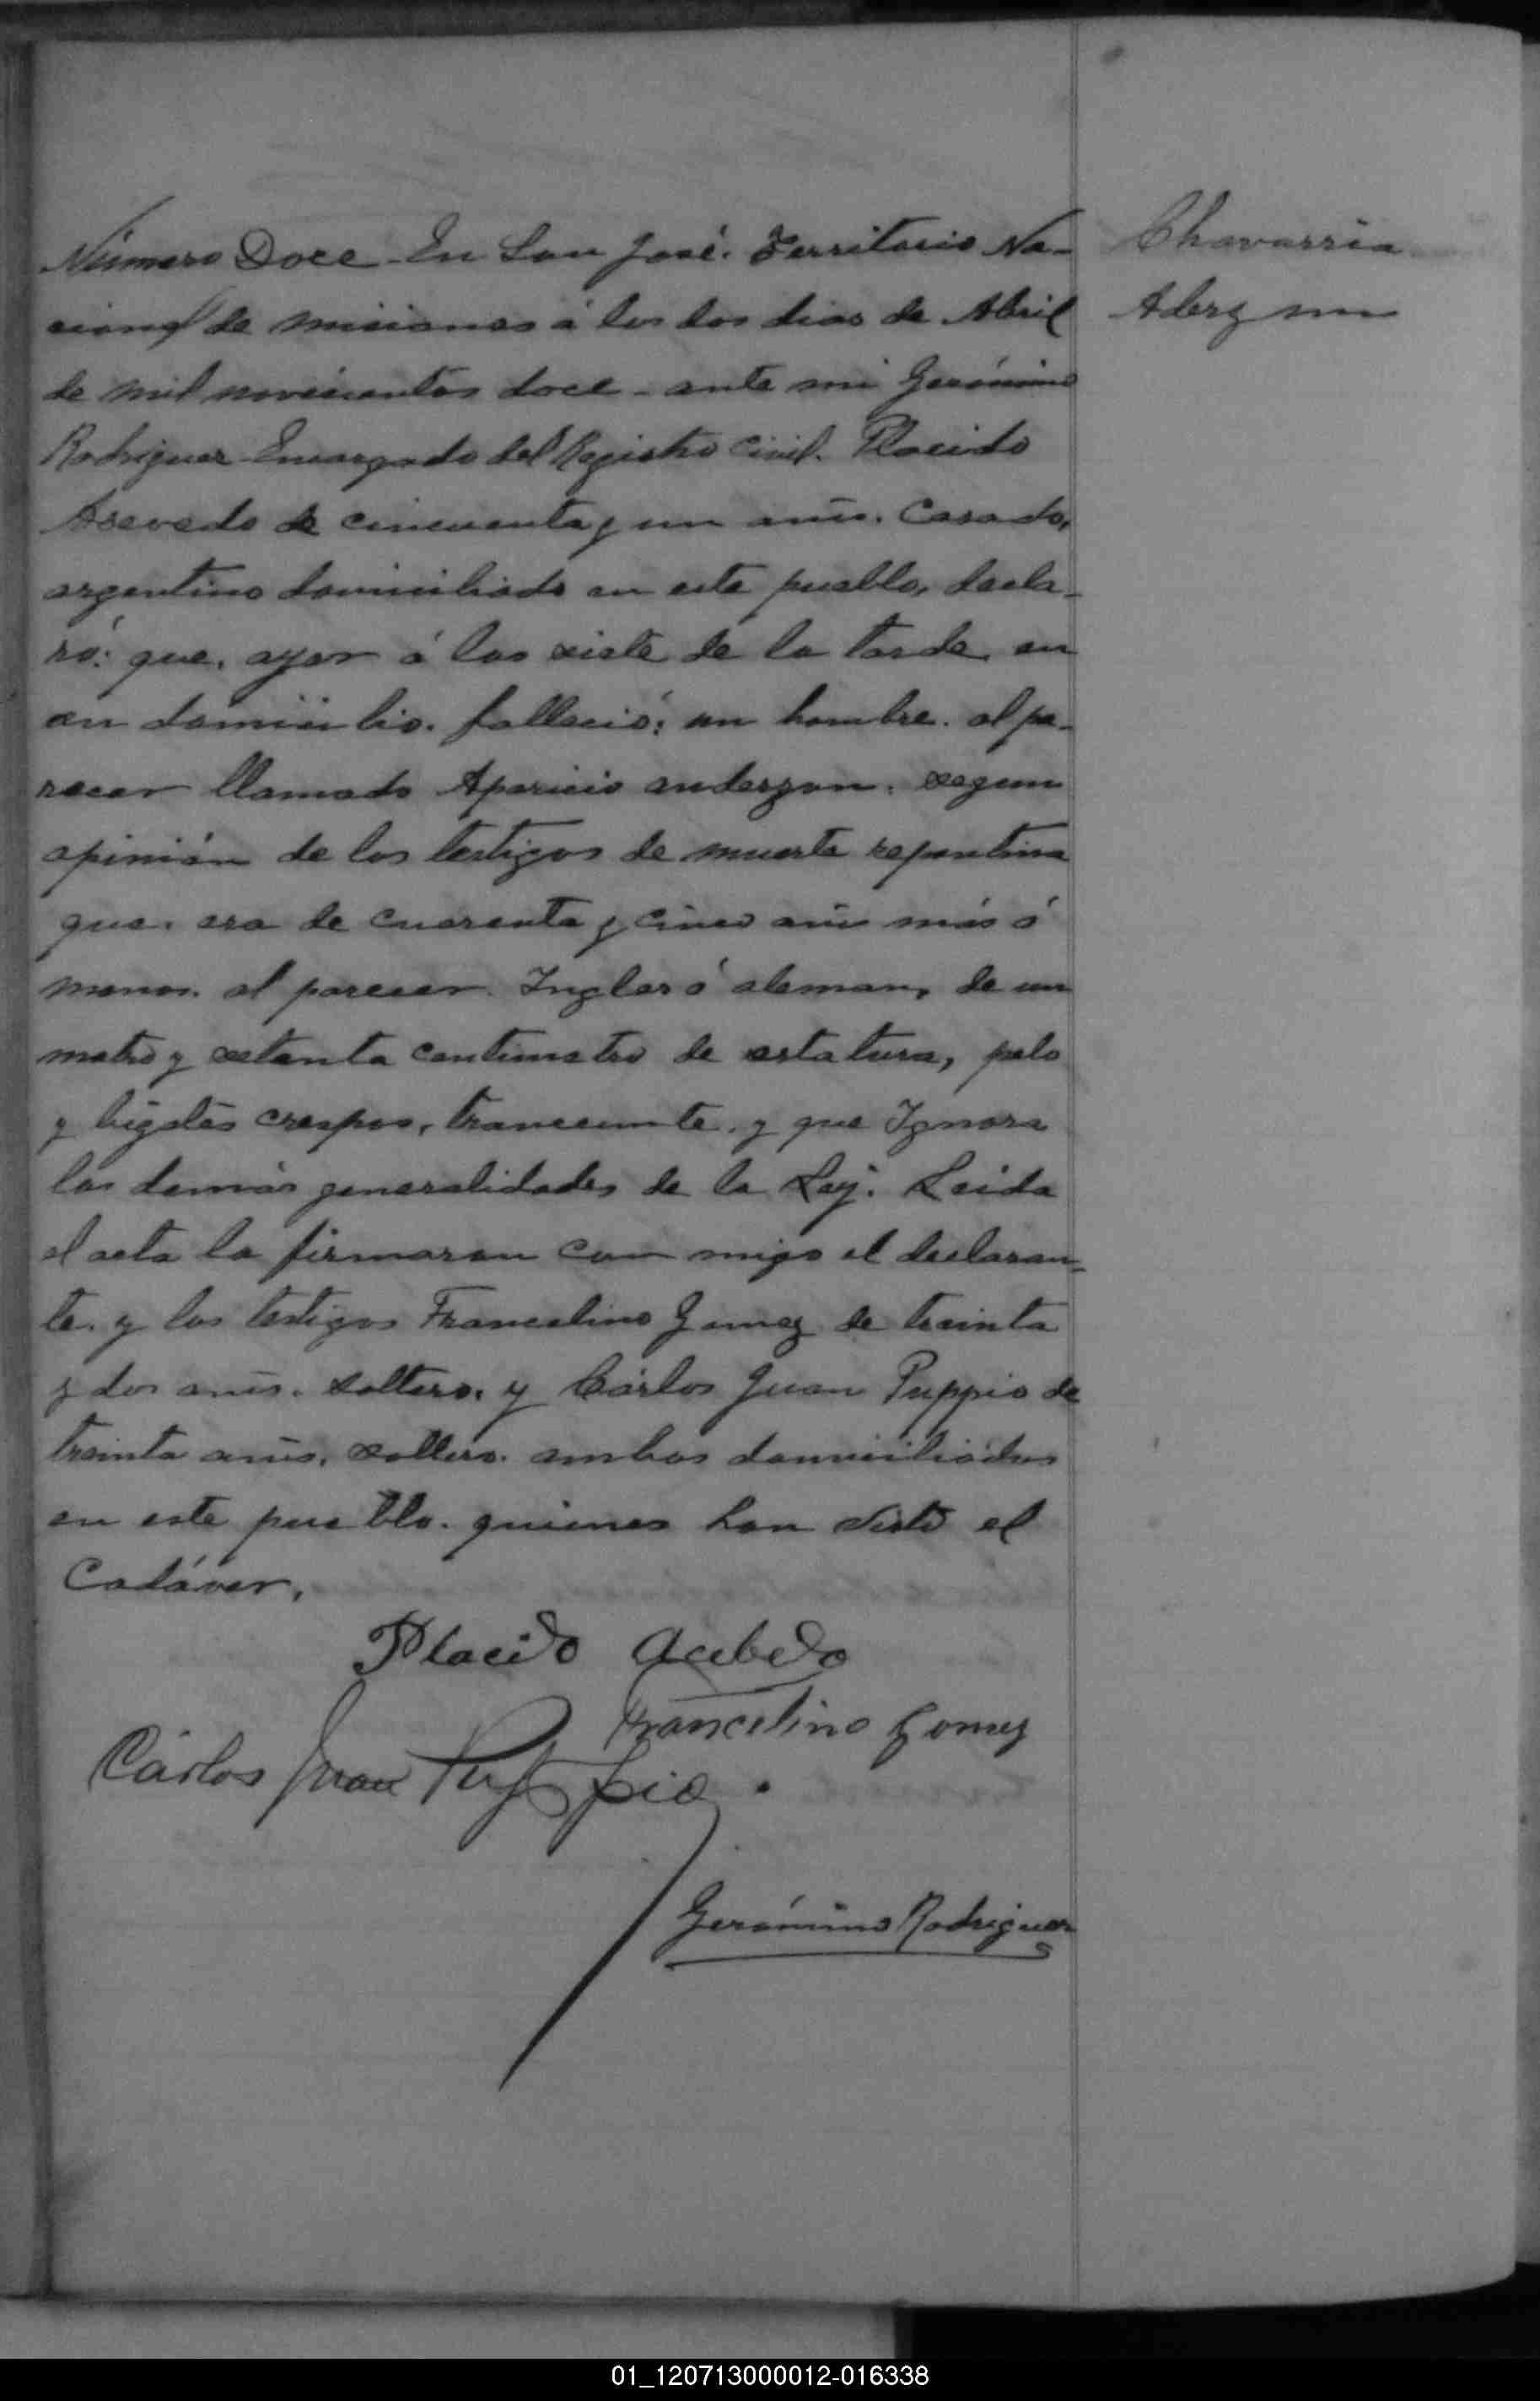 Número Doce - En San José. Territorio Na-
cional de misiones á los dos dias de Abril
de mil novecientos doce - ante mi Gerónimo
Rodriguez Encargado del Registro Civil. Placido
Asevedo de cincuenta y un años. Casado,
argentino domiciliado en este pueblo, decla-
ró: que, ayer á las siete de la tarde en
su domicilio. falleció: un hombre. al pa-
recer llamado Aparicio anderzon. segun
opinión de los testigos de muerte repentina
que. era de cuarenta y cinco años más ó
menos. al parecer. Ingles ó aleman, de un
metro y setenta centimetro de estatura, pelo
y bigotes crespos, tranceunte. y que Ignora
las demás generalidades de la Ley. Leida
el acta la firmaron con migo el declaran-
te. y los testigos Francelino Gomez de treinta
y dos años. soltero. y Cárlos Juan Puppio de
treinta años. soltero. ambos domiciliados
en este pueblo. quienes han visto el
Cadáver.
Placido Acebedo
Francelino Gomez
Cárlos Juan Puppio.
Gerónimo Rodriguez
Chavarria
Aderzon
01_120713000012-016338